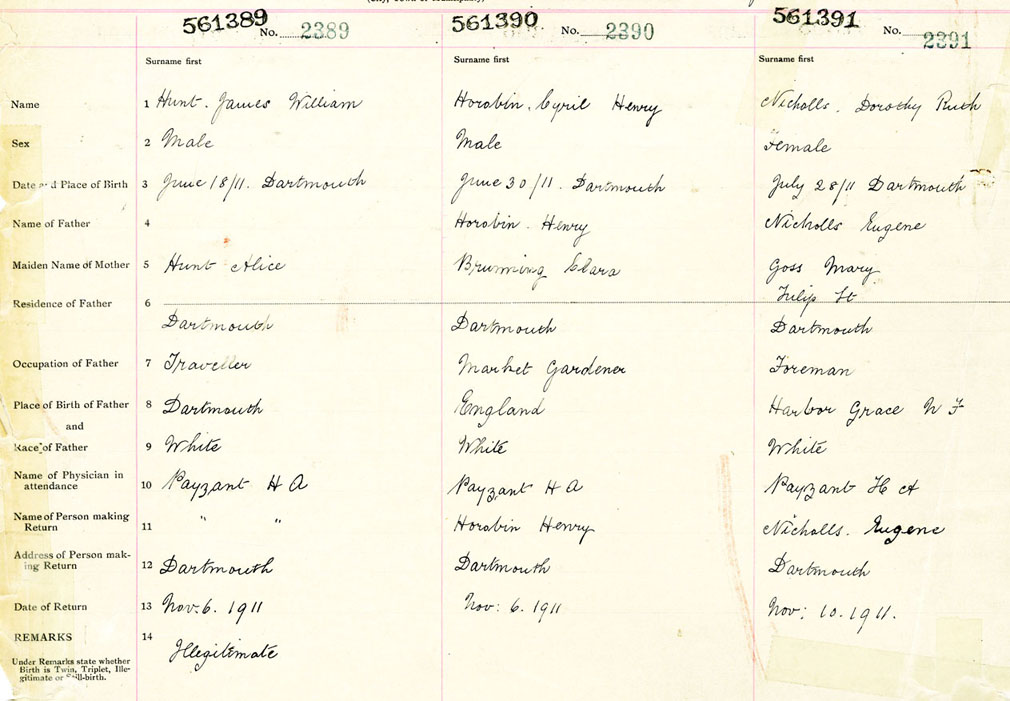 561389 No. 2389 561390 No. 2390 561391 No. 2391
Surname first Surname first Surname first
Name 1 Hunt. James William Horobin. Cyril Henry Nicholls. Dorothy Ruth
Sex 2 Male Male Female
Date and Place of Birth 3 June 18/11. Dartmouth June 30/11. Dartmouth July 28/11 Dartmouth
Name of Father 4 Horobin. Henry Nicholls Eugene
Maiden Name of Mother 5 Hunt Alice Brunning Clara Goss Mary
Residence of Father 6 Tulip St
Dartmouth Dartmouth Dartmouth
Occupation of Father 7 Traveller Market Gardener Foreman
Place of Birth of Father 8 Dartmouth England Harbor Grace N F
and
Race of Father 9 White White White
Name of Physician in
attendance 10 Payzant H A Payzant H A Payzant H A
Name of Person making
Return 11 " " Horobin Henry Nicholls. Eugene
Address of Person mak-
ing Return 12 Dartmouth Dartmouth Dartmouth
Date of Return 13 Nov. 6. 1911 Nov: 6. 1911 Nov: 10. 1911.
REMARKS 14
Illegitimate
Under Remarks state whether
Birth is Twin, Triplet, Ille-
gitimate or Still-birth.